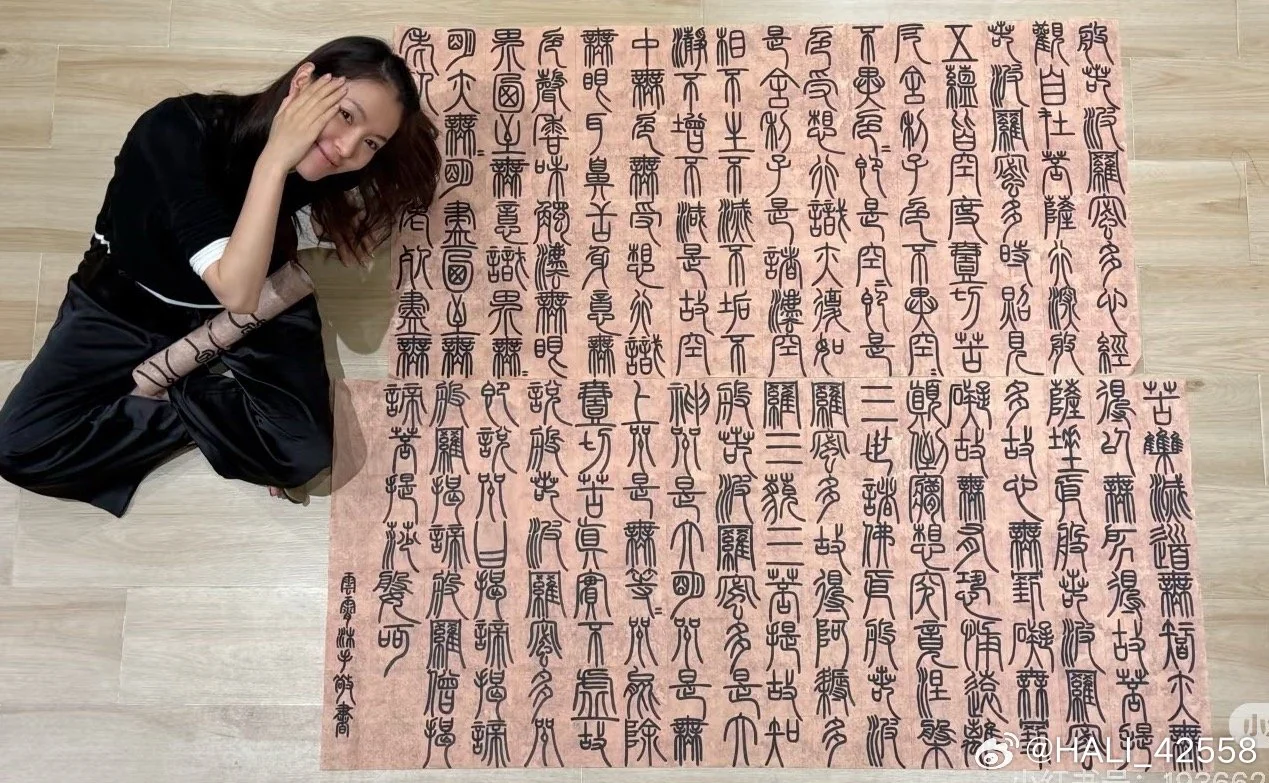 般若波羅蜜多心經
觀自在菩薩行深般
若波羅蜜多時照見
五蘊皆空度壹切苦
厄舍利子色不異空=
不異色=即是空=即是
色受想行識亦復如
是舍利子是諸灋空
相不生不滅不垢不
瀞不增不減是故空
中無色無受想行識
無眼耳鼻舌身意無
色聲香味觸灋無眼
界乃至無意識界無=
明亦無=明盡乃至無
老死盡無
苦集滅道無智亦無
得以無所得故菩提
薩埵依般若波羅蜜
多故心無罣礙無罣
礙故無有恐怖遠離
顛倒夢想究竟涅槃
三世諸佛依般若波
羅蜜多故得阿耨多
羅三藐三菩提故知
般若波羅蜜多是大
神咒是大明咒是無
上咒是無等=咒能除
壹切苦真實不虛故
說般若波羅蜜多咒
即說咒曰揭諦揭諦
般羅揭諦般羅僧揭
諦菩提莎婆訶
沐手敬書
@HALI_42558